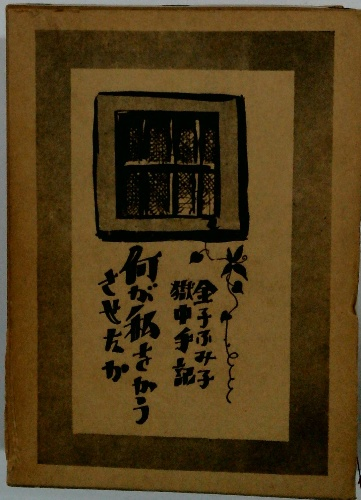 金子ふみ子
獄中手記
何が私をかう
させたか